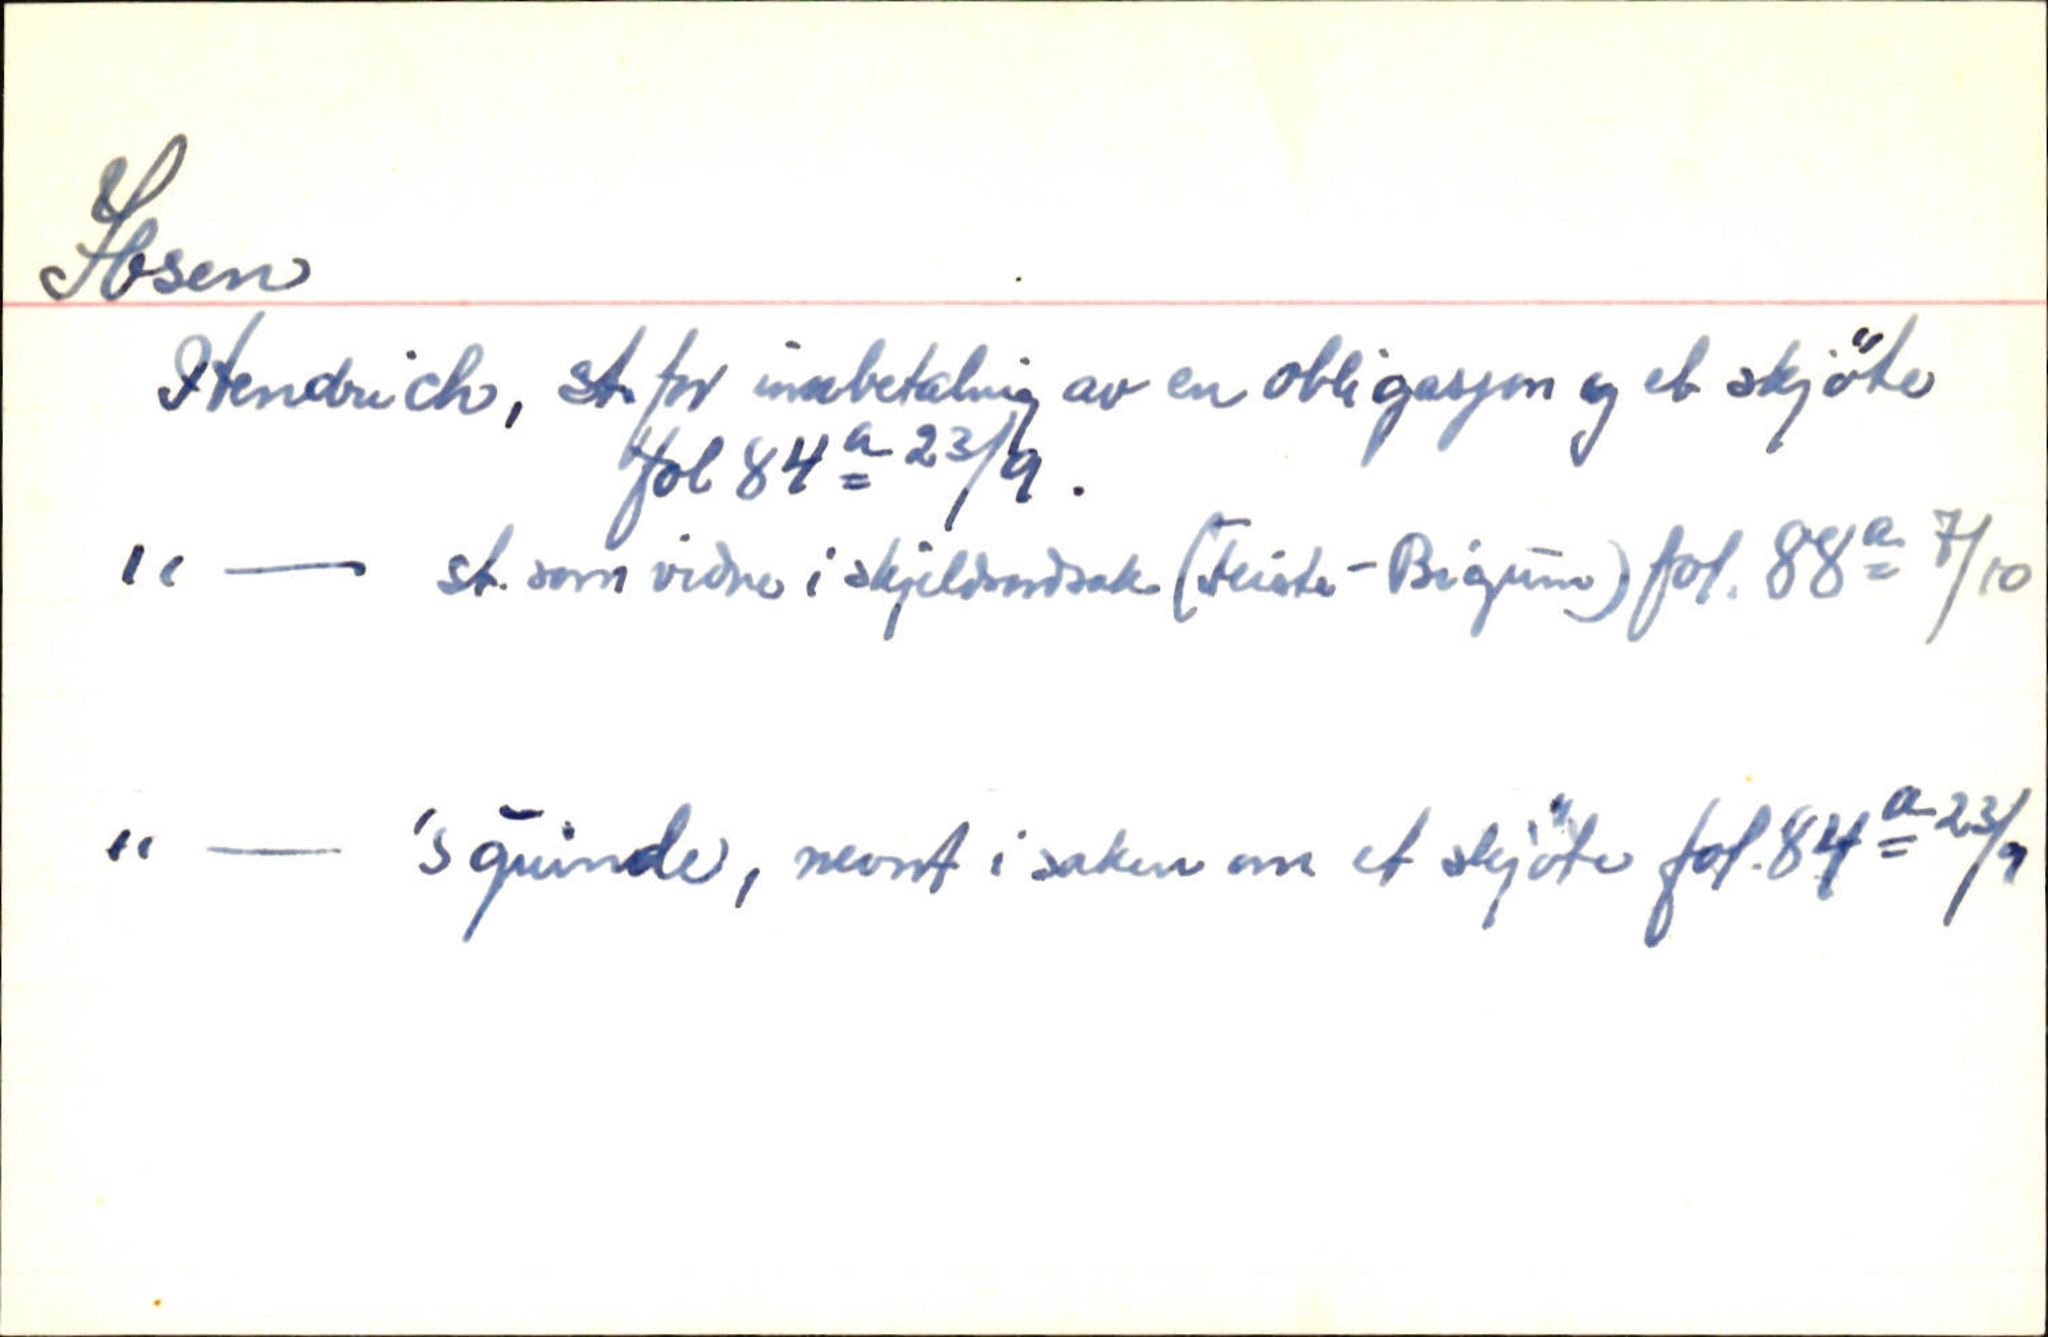 Ibsen
Hendrich, st. for innbetalning av en obligasjon og et skjöte
fol 84a 23/9.
" — st. som vidne i skjeldsordsak (Feiste - Bigum) fol. 88a 7/10
" — 's quinde, nevnt i saken om et skjöte fol. 84a 23/9